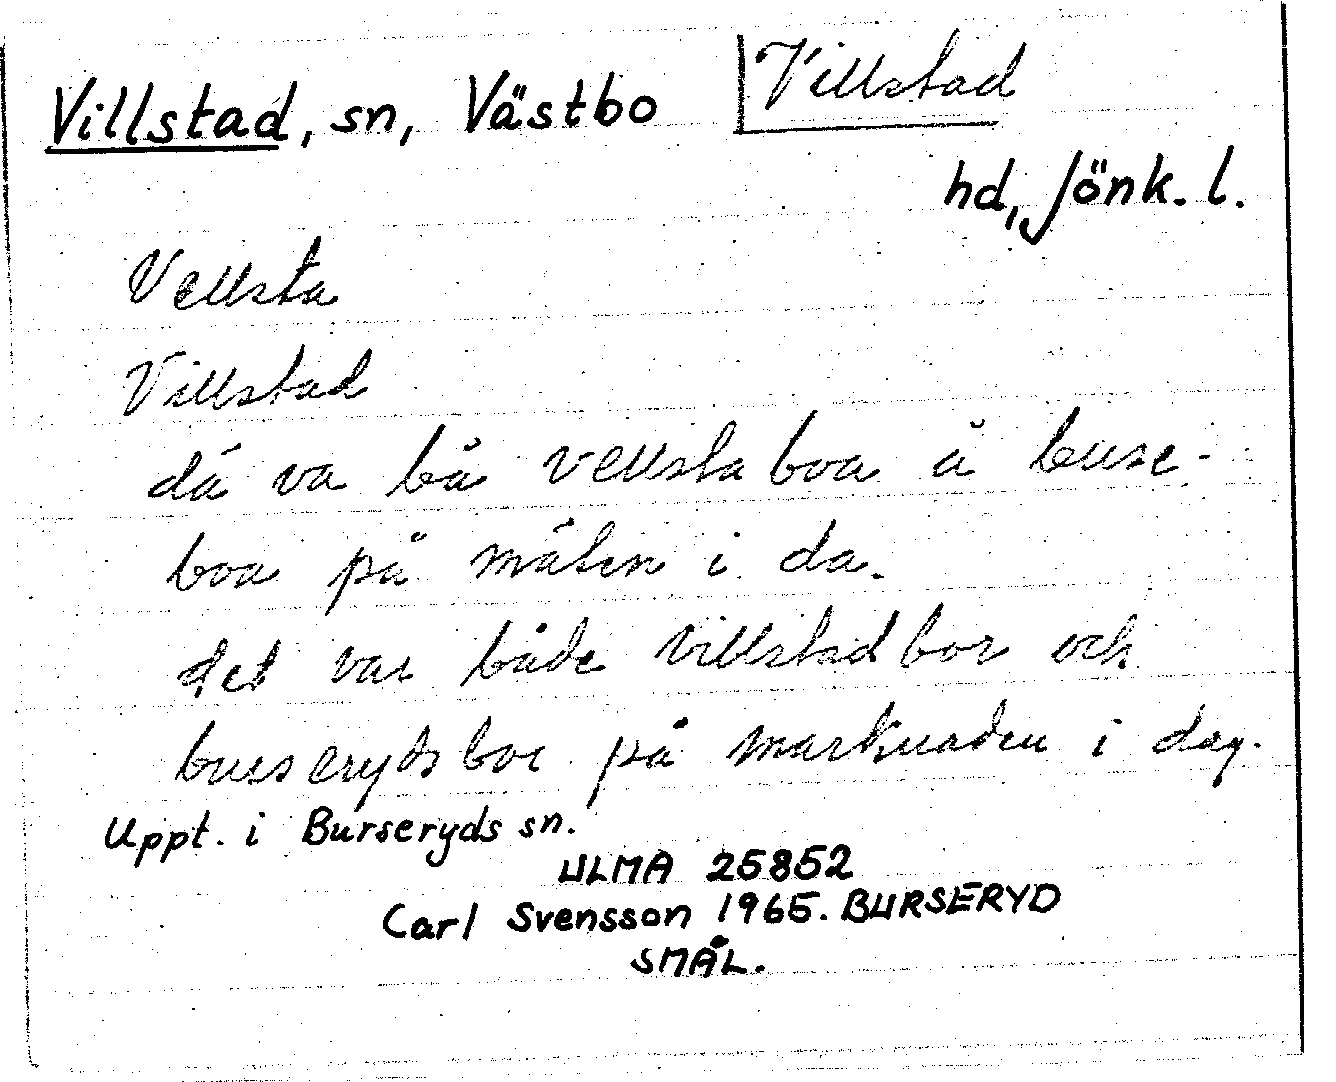 Villstad, sn, Västbo
Villstad
hd, Jönk. l.
Vellsta
Villstad
dä va bå vellstaboa å buse-
boa på maten i da.
det var både villstadbor och
burserydsbor på marknaden i dag.
Uppt. i Burseryds sn.
ULMA 25852
Carl Svensson 1965. BURSERYD
SMÅL.